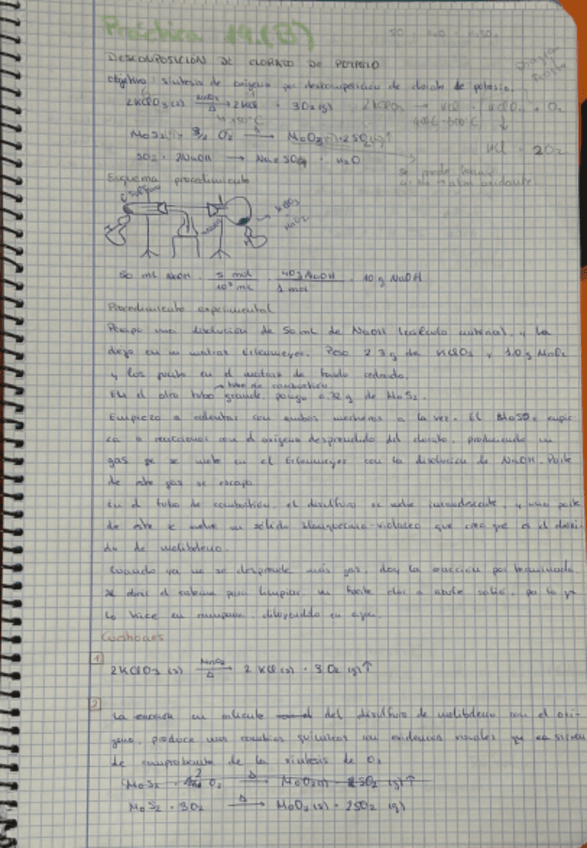 Práctica 19.(B)
DESCOMPOSICIÓN DE CLORATO DE POTASIO
Objetivo: síntesis de oxígeno por descomposición de clorato de potasio.
2KClO3(s) MnO2 Δ → 2KCl + 3O2(g)
MoS2 + O2 Δ → MoO2 + 2SO2(g)↑
SO2 + 2NaOH → + H2O
KCl + 2O2
se puede
Esquema procedimiento
50 ml NaOH · 5 mol / 10³ ml · 40g NaOH / 1 mol = 10 g NaOH
Procedimiento experimental
Preparo una disolución de 50 mL de NaOH (cálculo anterior), y la
dejo en un matraz Erlenmeyer. Peso 2.3g de KClO3 y 1.0g MnO2
y los pongo en el matraz de fondo redondo.
tubo de combustión
En el otro tubo grande, pongo g de MoS2.
Empiezo a calentar con ambos mecheros a la vez. El empie-
za a reaccionar con el oxígeno desprendido del clorato, produciendo un
gas que se mete en el Erlenmeyer con la disolución de NaOH. Parte
de este gas se escapa.
En el tubo de combustión, el disulfuro se vuelve incandescente, y una parte
de este se vuelve un sólido blanquecino-violáceo que creo que es el dióxi-
do de molibdeno.
Cuando ya no se desprende más gas, doy la reacción por terminada.
Se deja el sistema para limpiar, un fuerte olor a azufre salió, por lo q
lo hice en campana, diluyendo en agua.
Cuestiones
1
2KClO3 (s) MnO2 Δ → 2 KCl (s) + 3 O2 (g)↑
2
La reacción en caliente del disulfuro de molibdeno con el oxí-
geno, produce unos cambios químicos con evidencias visuales que
de comprobante de la síntesis de O2
MoS2 + O2 Δ → MoO2(s) + 2SO2 (g)↑
MoS2 + 3O2 Δ → MoO2 (s) + 2SO2 (g)